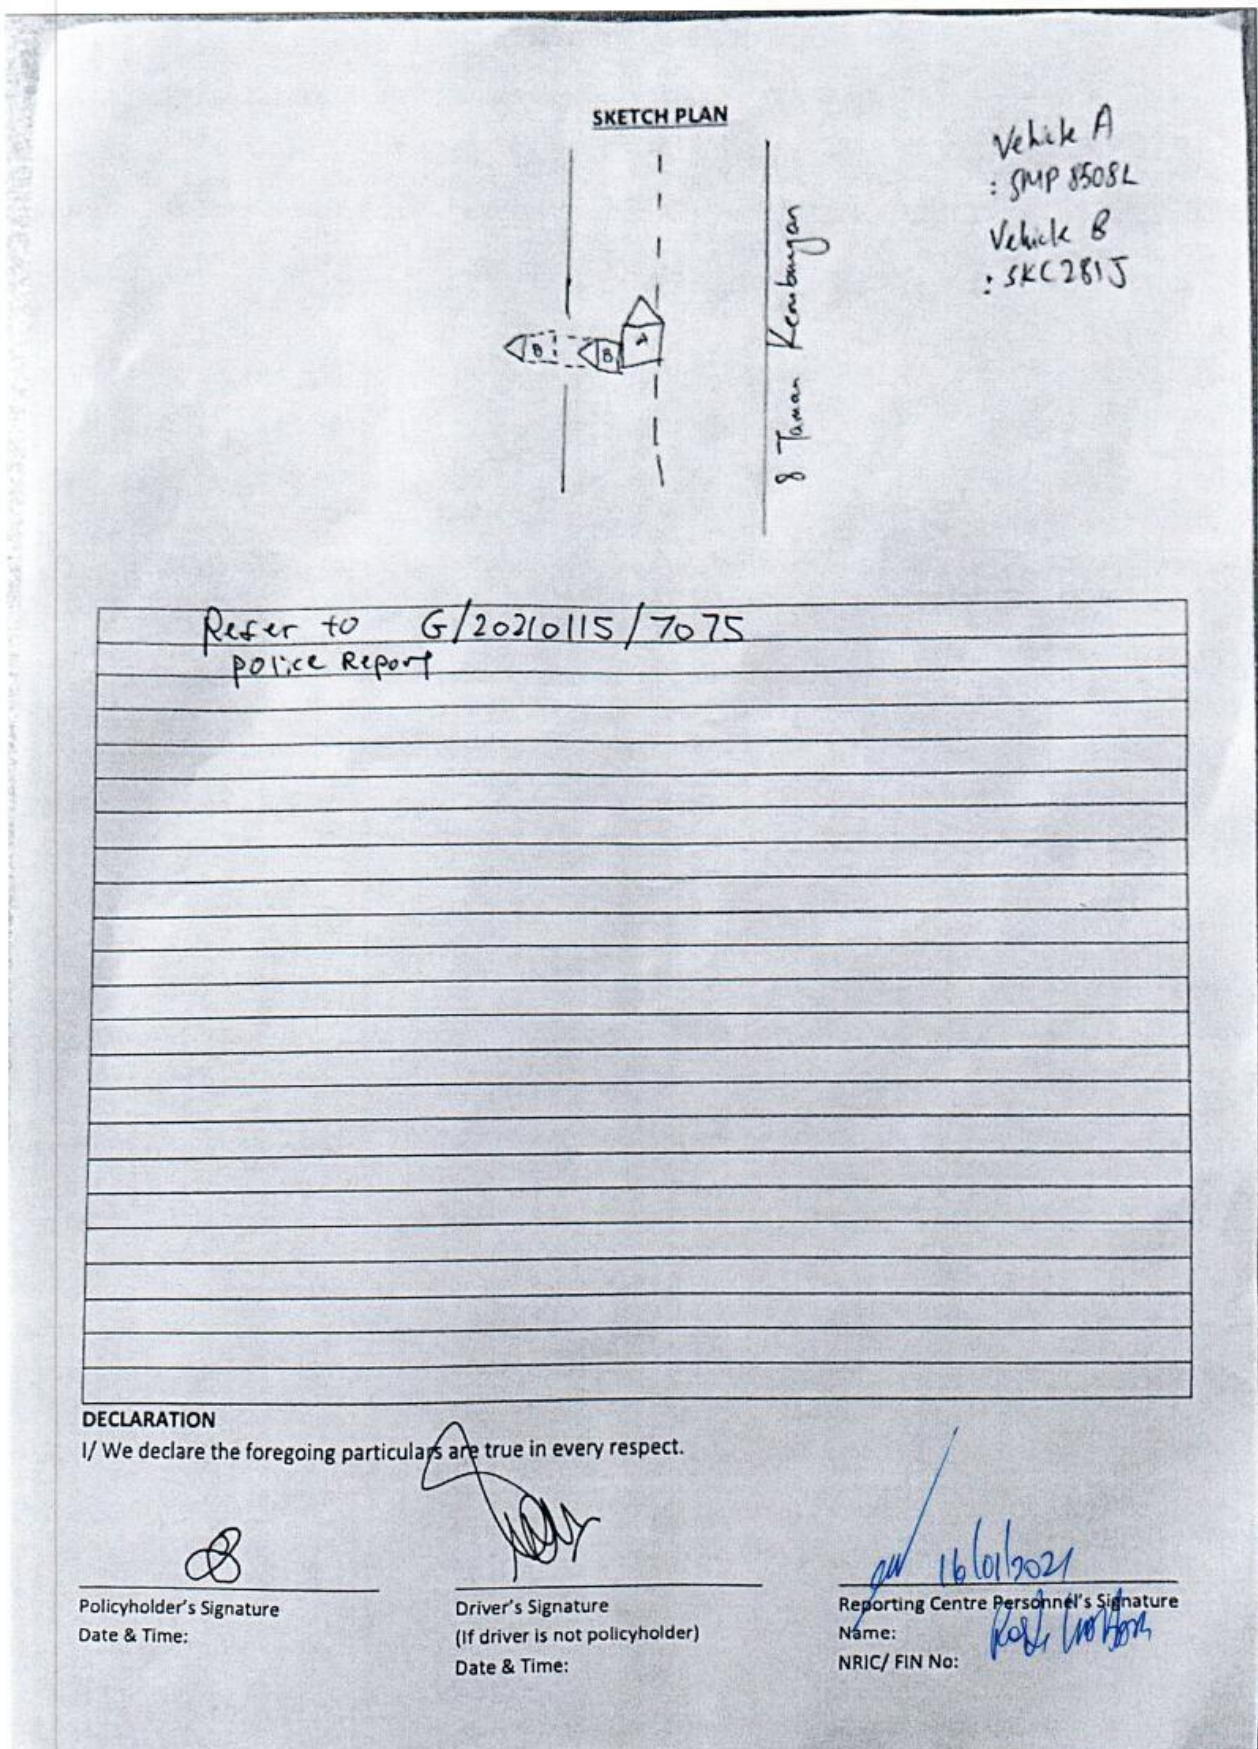 SKETCH PLAN
Vehicle A
: SMP 8508L
Vehicle B
: SKC281J
8 Taman Kembangan
B
B
A
Refer to G/20210115/7075
police Report
DECLARATION
I/ We declare the foregoing particulars are true in every respect.
16/01/2021
Policyholder's Signature
Date & Time:
Driver's Signature
(If driver is not policyholder)
Date & Time:
Reporting Centre Personnel's Signature
Name:
NRIC/ FIN No: